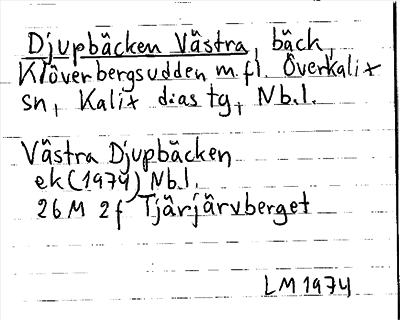 Djupbäcken Västra, bäck,
Klöverbergsudden m.fl. Överkalix
sn, Kalix d:as tg, Nb.l.
Västra Djupbäcken
ek (1974) Nb.l.
26M 2f Tjärjärvberget
LM 1974